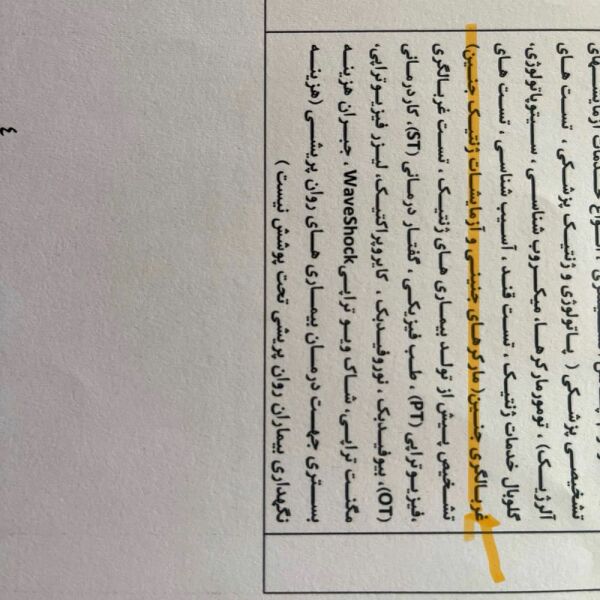 انواع خدمات آزمایشهای
تشخیصی پزشکی ( پاتولوژی و ژنتیک پزشکی ، تست های
آلرژیک) ، تومورمارکرها، میکروب شناسی ، سیتوپاتولوژی،
گلوبال خدمات ژنتیک ، تست قند ، آسیب شناسی ، تست های
غربالگری جنین( مارکرهای جنینی و آزمایشات ژنتیک جنین)
تشخیص پیش از تولد بیماری های ژنتیک ، تست غربالگری
،فیزیوتراپی (PT) ، طب فیزیکی ، گفتار درمانی (ST)، کاردرمانی
(OT)، بیوفیدبک ، نوروفیدبک ، کایروپراکتیک، لیزر فیزیوتراپی،
مگنت تراپی، شاک ویو تراپیWaveShock ، جبران هزینه
بستری جهت درمان بیماری های روان پریشی (هزینه
نگهداری بیماران روان پریشی تحت پوشش نیست )
٤